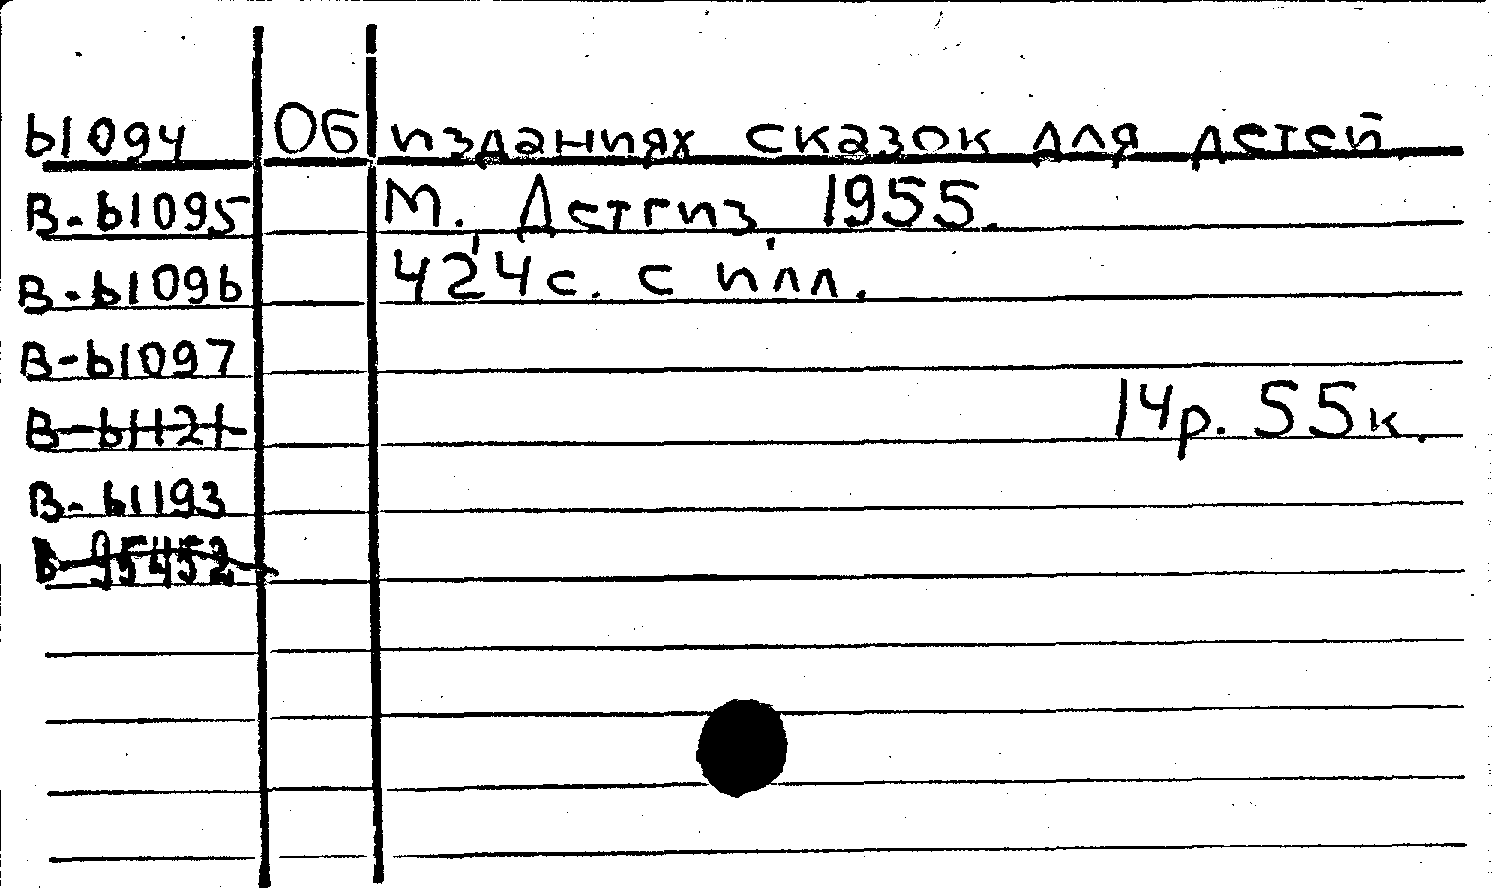 61094 Об изданиях сказок для детей
В-61095 М. Детгиз, 1955.
В-61096 424с. с илл.
В-61097
В-61121 14р. 55к.
В-61193
В-95452